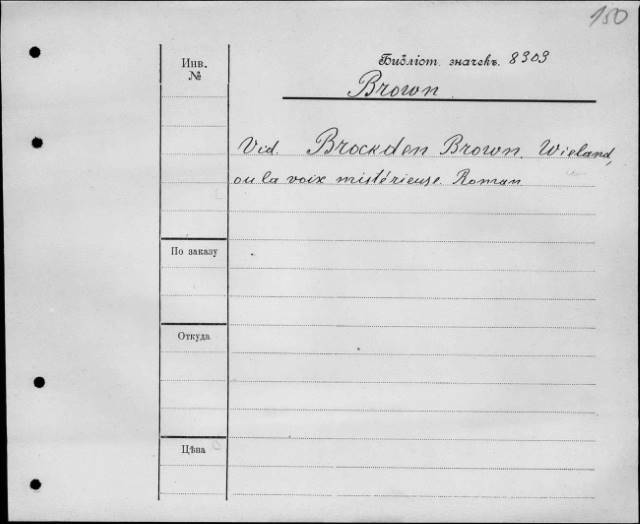 150
Инв.
№
Библіот. значекъ. 8303
Brown
Vid. Brockden Brown. Wieland,
ou la voix mistérieuse. Roman
По заказу
Откуда
Цѣна